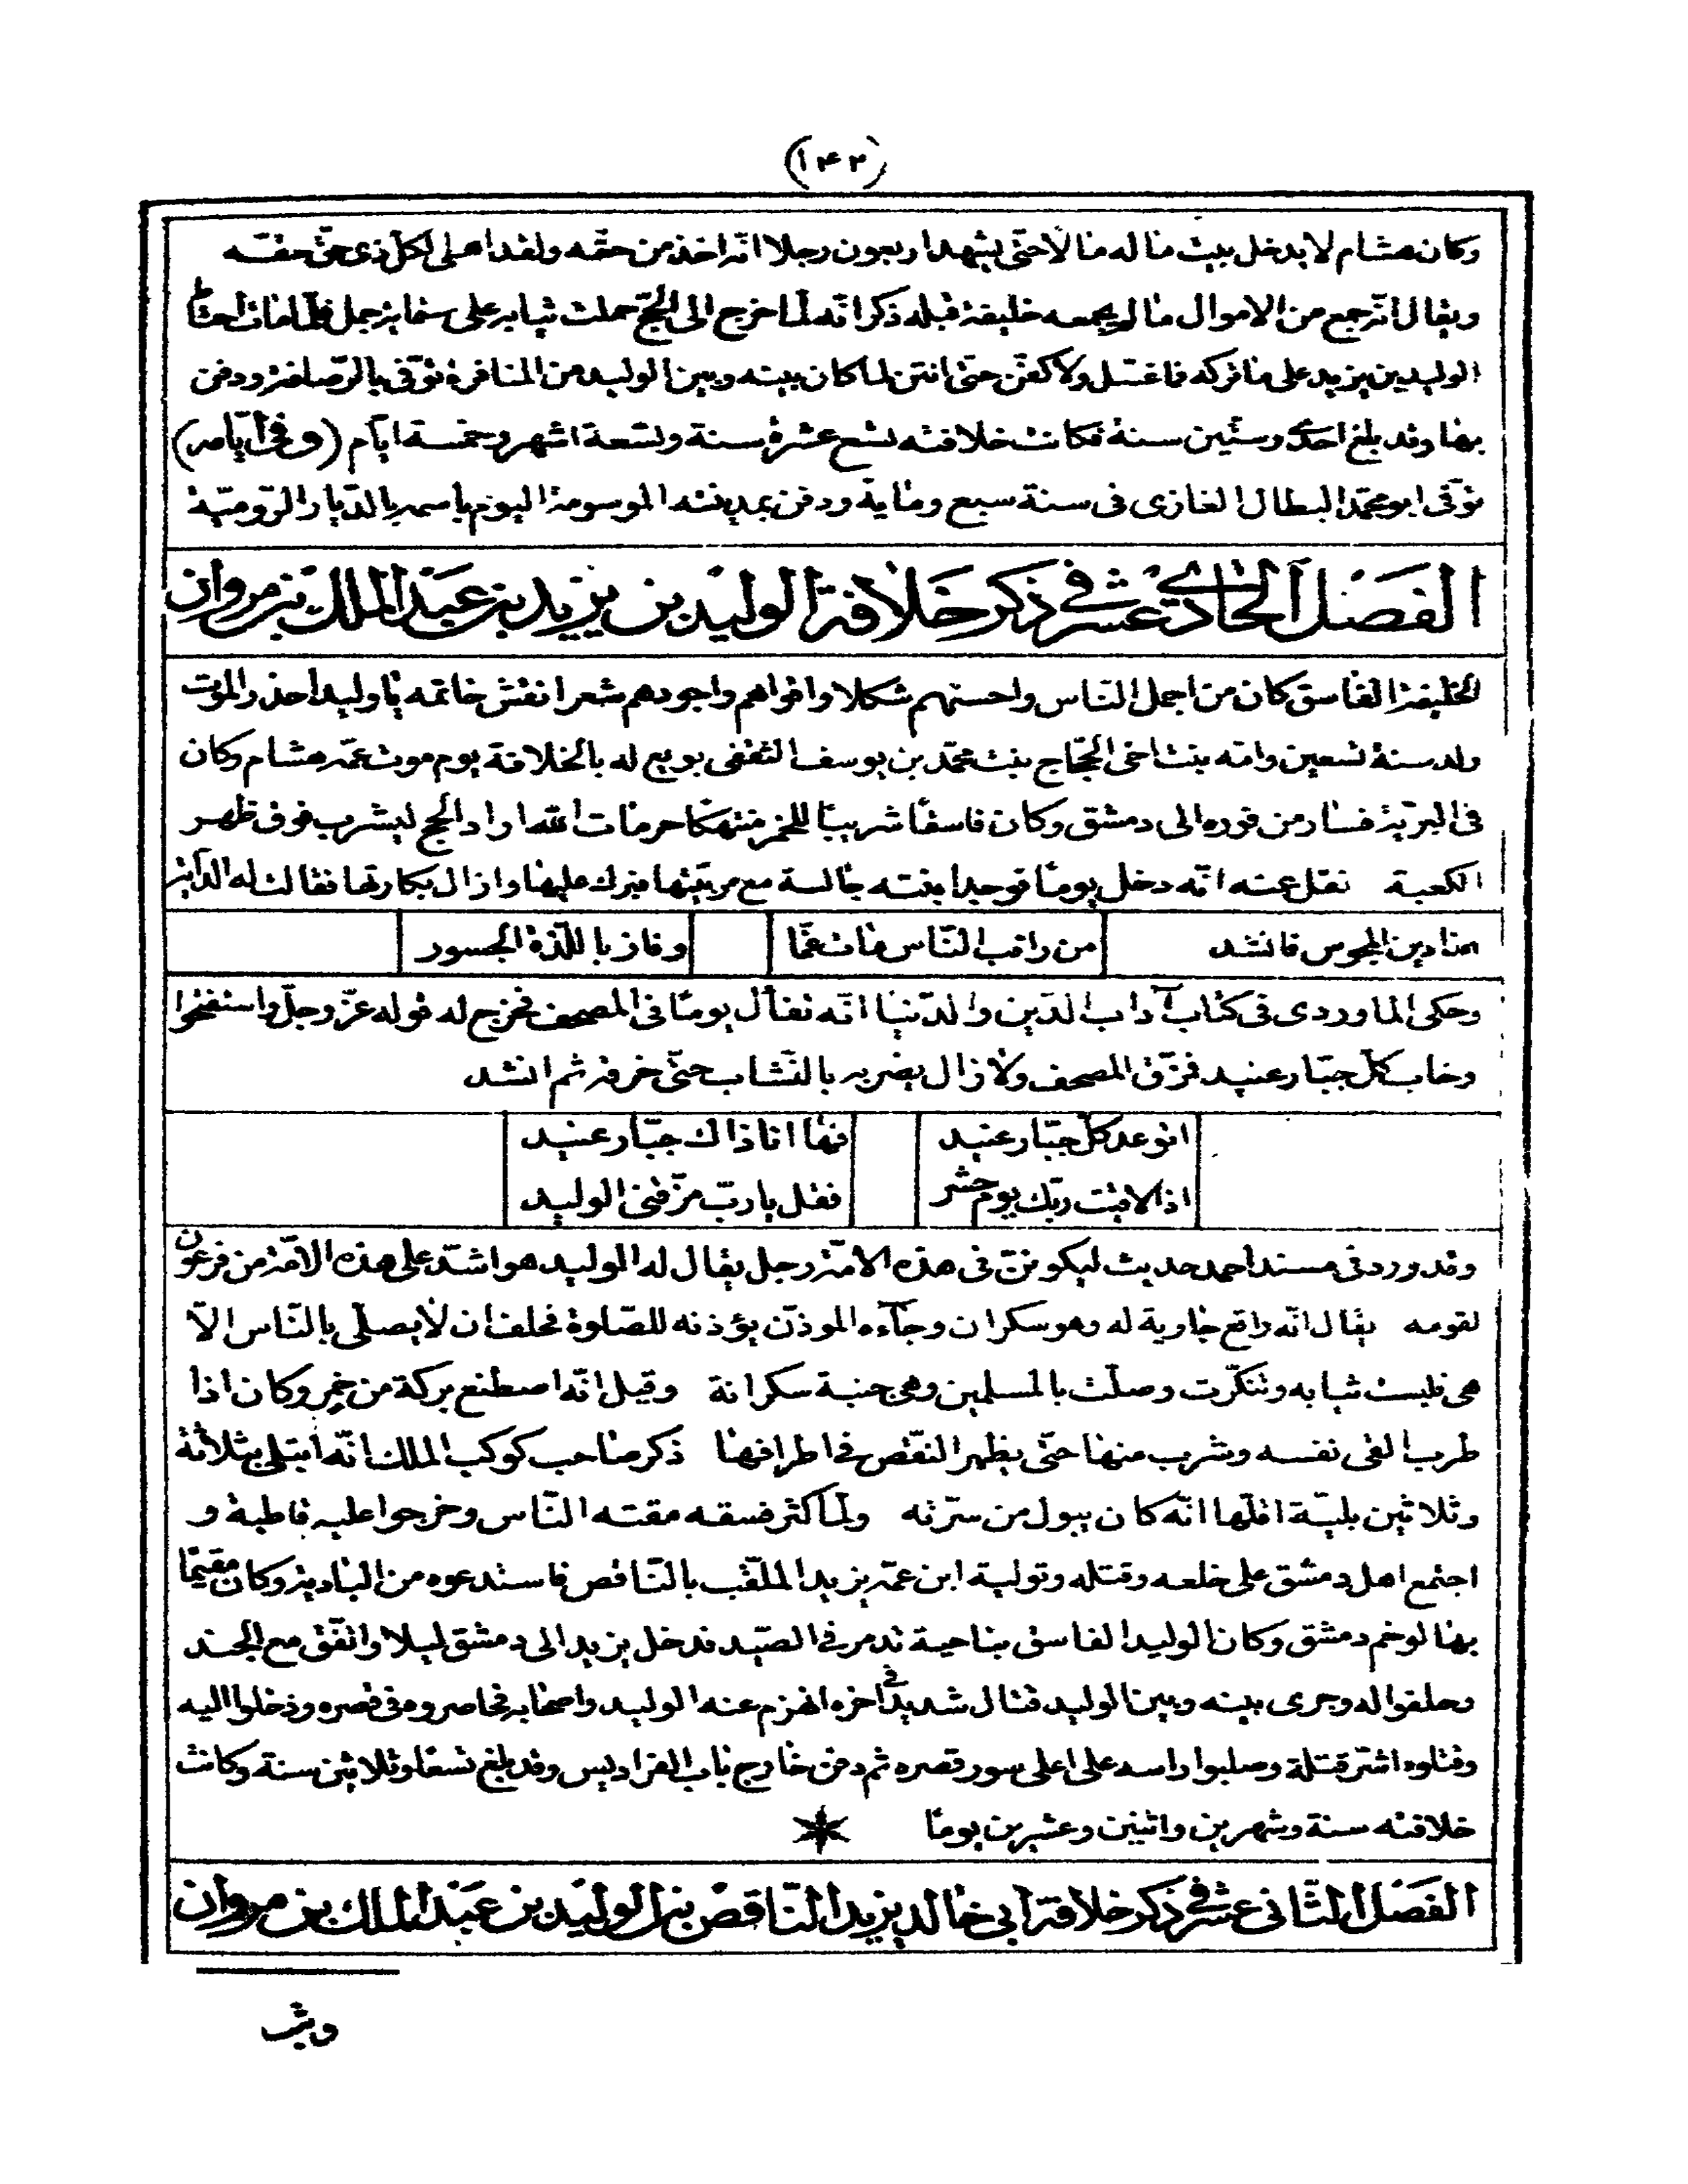 (١٤٢)
وكان هشام لا يدخل بيت ماله مالا حتى يشهد اربعون رجلا انه اخذ من حقه ولقد اعطى لكل ذى حق حقه
ويقال انه جمع من الاموال ما لم يجمعه خليفة قبله ذكر انه لما خرج الى الحج حملت ثيابه على ستماية جمل فلما مات احتاط
الوليد بن يزيد على ما تركه فما غسل ولا كفن حتى انتن لما كان بينه وبين الوليد من المنافرة توفى بالرصافة ودفن
بها وقد بلغ احدى وستين سنة فكانت خلافته تسع عشرة سنة وتسعة اشهر وخمسة ايام (وفى ايامه)
توفى ابو محمد البطال الغازى فى سنة سبع وماية ودفن بمدينته الموسومة اليوم باسمه بالديار الرومية
الفصل الحادى عشر فى ذكر خلافة الوليد بن يزيد بن عبد الملك بن مروان
الخليفة الفاسق كان من اجمل الناس واحسنهم شكلا واقواهم واجودهم شعرا نقش خاتمه يا وليد احذر الموت
ولد سنة تسعين وامه بنت اخى الحجاج بنت محمد بن يوسف الثقفى بويع له بالخلافة يوم موت عمه هشام وكان
فى البرية فسار من فوره الى دمشق وكان فاسقا شريبا للخمر منتهكا حرمات الله اراد الحج ليشرب فوق ظهر
الكعبة نقل عنه انه دخل يوما فوجد ابنته جالسة مع مربيتها فبرك عليها وازال بكارتها فقالت له الداية
هذا دين المجوس فانشد من راقب الناس مات غما وفاز باللذة الجسور
وحكى الماوردى فى كتاب آداب الدين والدنيا انه تفأل يوما فى المصحف فخرج له قوله عز وجل واستفتحوا
وخاب كل جبار عنيد فمزق المصحف ولا زال يضربه بالنشاب حتى خرقه ثم انشد
اتوعد كل جبار عنيد فها انا ذاك جبار عنيد
اذا لاقيت ربك يوم حشر فقل يا رب مزقنى الوليد
وقد ورد فى مسند احمد حديث ليكونن فى هذه الامة رجل يقال له الوليد هو اشد على هذه الامة من فرعون
لقومه يقال انه واقع جارية له وهو سكران وجآءه الموذن يؤذنه للصلوة فحلف ان لا يصلى بالناس الا
هى فلبست ثيابه وتنكرت وصلت بالمسلمين وهى جنبة سكرانة وقيل انه اصطنع بركة من خمر وكان اذا
طرب القى نفسه وشرب منها حتى يظهر النقص فى اطرافها ذكر صاحب كوكب الملك انه ابتلى بثلاثة
وثلاثين بلية اقلها انه كان يبول من سرته ولما كثر فسقه مقته الناس وخرجوا عليه قاطبة و
اجتمع اهل دمشق على خلعه وقتله وتولية ابن عمه يزيد الملقب بالناقص فاستدعوه من البادية وكان مقيما
بها لوخم دمشق وكان الوليد الفاسق بناحية تدمر فى الصيد فدخل يزيد الى دمشق ليلا واتفق مع الجند
وحلفوا له وجرى بينه وبين الوليد قتال شديد فى اخره انهزم عنه الوليد واصحابه فحاصروه فى قصره ودخلوا اليه
وقتلوه اشر قتلة وصلبوا راسه على اعلى سور قصره ثم دفن خارج باب الفراديس وقد بلغ تسعا وثلاثين سنة وكانت
خلافته سنة وشهرين واثنين وعشرين يوما
الفصل الثانى عشر فى ذكر خلافة ابى خالد يزيد الناقص بن الوليد بن عبد الملك بن مروان